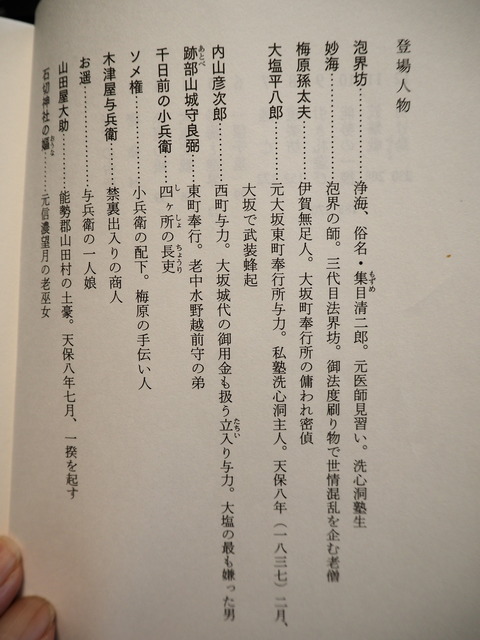 登場人物
泡界坊…………浄海、俗名・集目清二郎。元医師見習い。洗心洞塾生
妙海……………泡界の師。三代目法界坊。御法度刷り物で世情混乱を企む老僧
梅原孫太夫……伊賀無足人。大坂町奉行所の傭われ密偵
大塩平八郎……元大坂東町奉行所与力。私塾洗心洞主人。天保八年（一八三七）二月、
大坂で武装蜂起
内山彦次郎……西町与力。大坂城代の御用金も扱う立入り与力。大塩の最も嫌った男
跡部山城守良弼……東町奉行。老中水野越前守の弟
千日前の小兵衛……四ヶ所の長吏
ソメ権…………小兵衛の配下。梅原の手伝い人
木津屋与兵衛……禁裏出入りの商人
お遥……………与兵衛の一人娘
山田屋大助……能勢郡山田村の土豪。天保八年七月、一揆を起す
石切神社の嫗……元信濃望月の老巫女